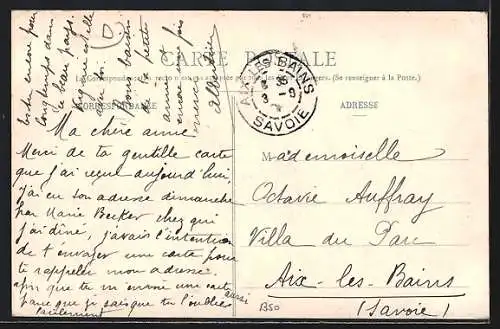 CARTE POSTALE
La Correspondance au recto n'est pas acceptée par tous les pays étrangers. (Se renseigner à la Poste.)
CORRESPONDANCE
ADRESSE
AIX-LES-BAINS
3 -9
SAVOIE
Ma chère amie
Merci de ta gentille carte
que j'ai reçue aujourd'hui,
j'ai eu son adresse dimanche
par Marie Becker chez qui
j'ai dîné, j'avais l'intention
de t'envoyer une carte pour
te rappeler mon adresse.
afin que tu m'envoie une carte aussi
parce que je sais que tu l'oublies
seulement
encore pour
longtemps dans
ce beau pays.
Bons baisers
de ta petite
amie et
encore une fois
merci
Mademoiselle
Octavie Auffray
Villa du Parc
Aix-les-Bains
(Savoie)
1350